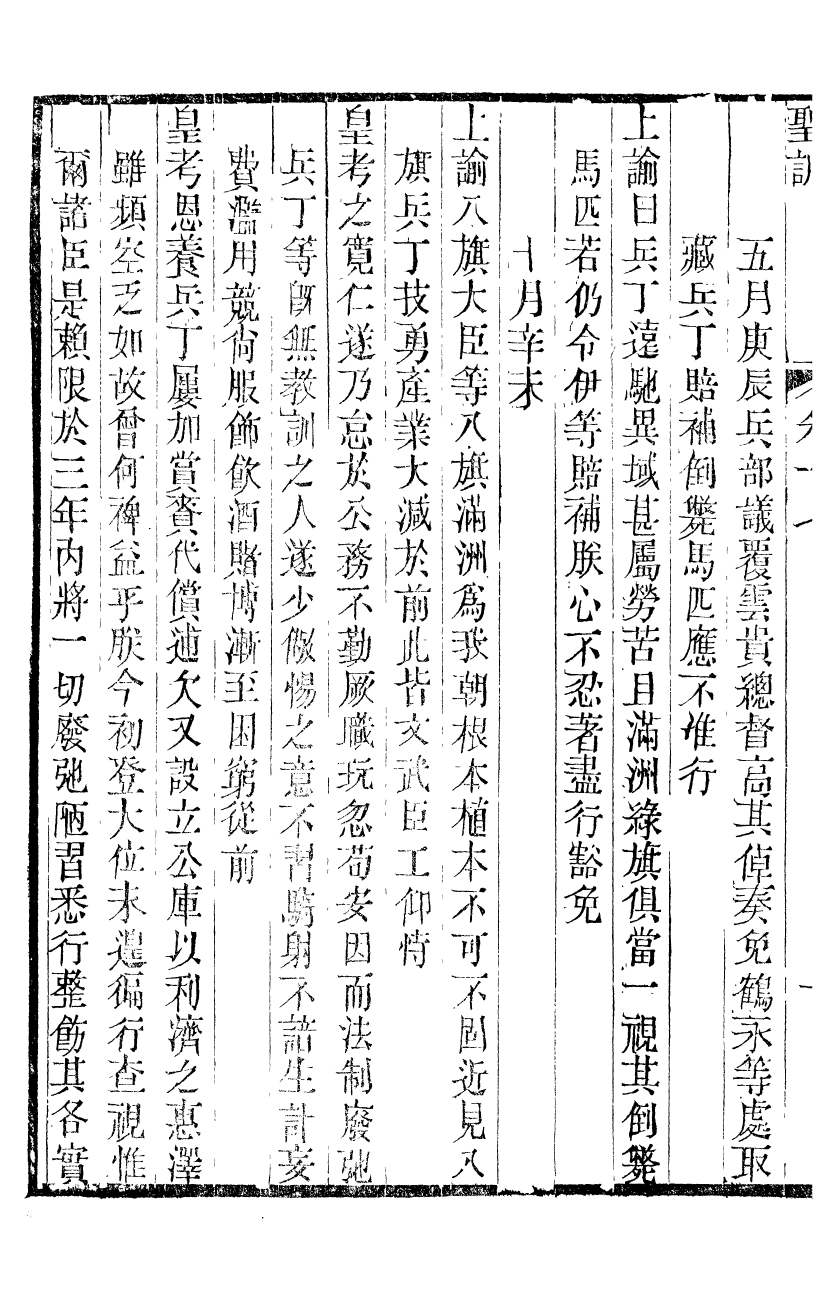 聖訓
五月庚辰兵部議覆雲貴總督高其倬奏免鶴永等處取
藏兵丁賠補倒斃馬匹應不准行
上諭曰兵丁遠馳異域甚屬勞苦且滿洲綠旗俱當一視其倒斃
馬匹若仍令伊等賠補朕心不忍著盡行豁免
十月辛未
上諭八旗大臣等八旗滿洲爲我朝根本植本不可不固近見八
旗兵丁技勇產業大減於前此皆文武臣工仰恃
皇考之寬仁遂乃怠於公務不勤厥職玩忽苟安因而法制廢弛
兵丁等旣無教訓之人遂少儆惕之意不習騎射不諳生計妄
費濫用競尙服飾飮酒賭博漸至困窮從前
皇考恩養兵丁屢加賞賚代償逋欠又設立公庫以利濟之惠澤
雖頻空乏如故曾何裨益乎朕今初登大位未遑徧行查視惟
爾諸臣是賴限於三年內將一切廢弛陋習悉行整飭其各實